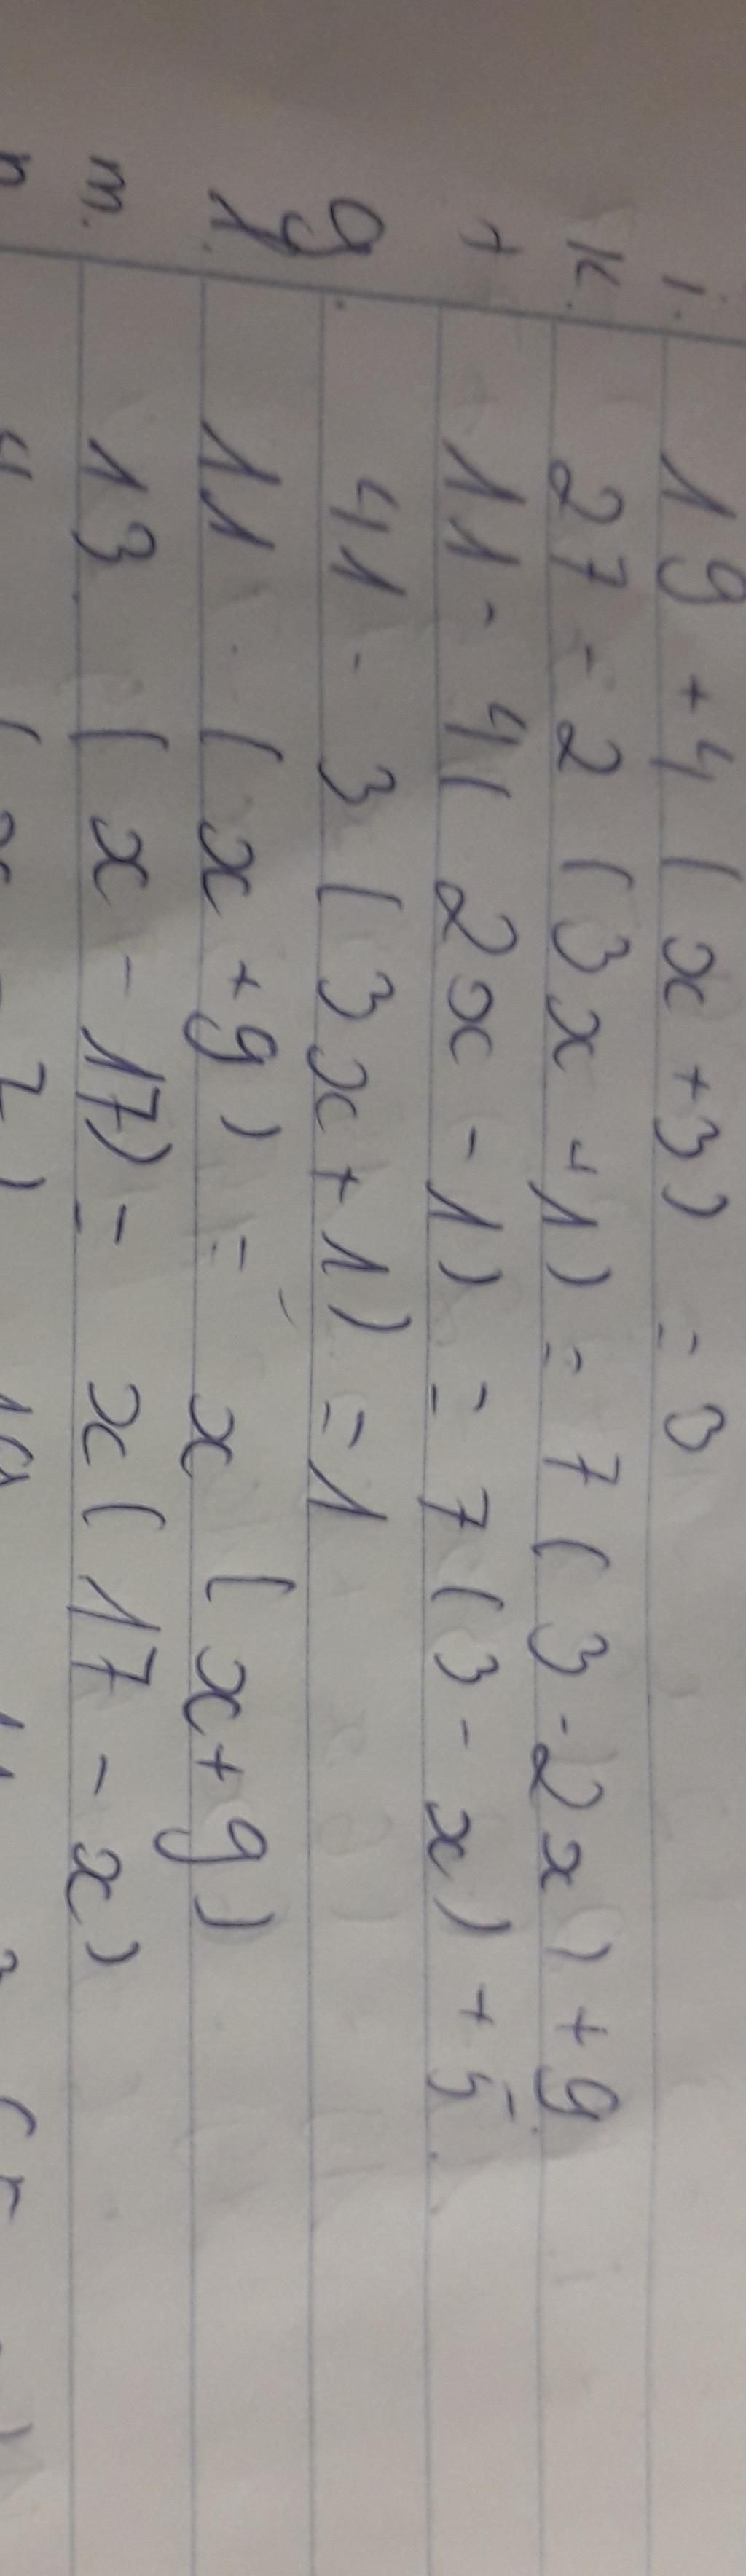 i. 19 + 4 ( x + 3 ) = 0
k. 27 - 2 ( 3x + 1 ) = 7 ( 3 - 2x ) + 9
+ 11 - 4 ( 2x - 1 ) = 7 ( 3 - x ) + 5
g. 41 - 3 ( 3x + 1 ) = 1
11 ( x + 9 ) = x ( x + 9 )
m. 13 ( x - 17 ) = x ( 17 - x )